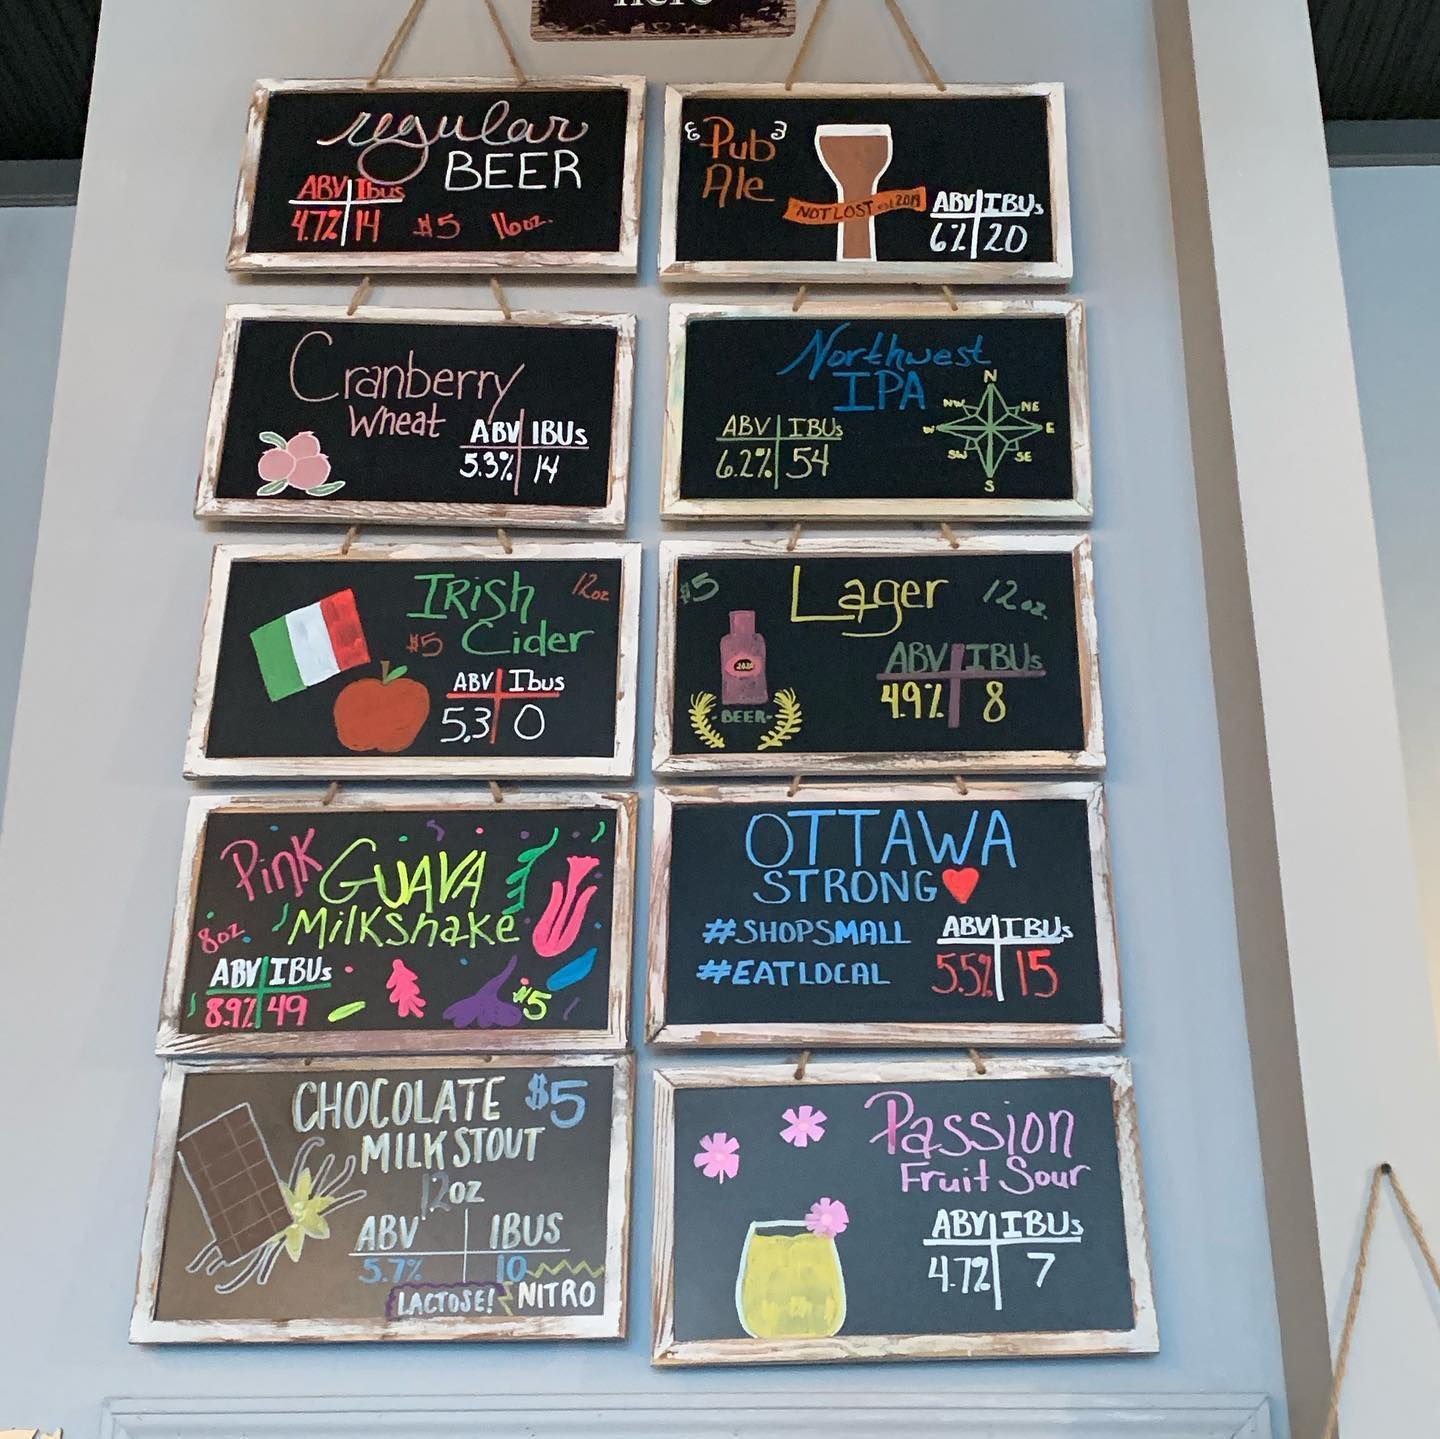 here
regular
BEER
ABV Ibus
4.7% 14 $5 16oz.
Pub
Ale
NOT LOST est. 2019
ABV IBUs
6% 20
Cranberry
Wheat
ABV IBUs
5.3% 14
Northwest
IPA
ABV IBUs
6.2% 54
N
NW NE
W E
SW SE
S
IRish 12oz
$5 Cider
ABV Ibus
5.3 0
$5 Lager 12oz.
ABV IBUs
4.9% 8
2020
-BEER-
Pink GUAVA
Milkshake
8oz
ABV IBUs
8.9% 49
$5
OTTAWA
STRONG
#SHOPSMALL
#EATLOCAL
ABV IBUs
5.5% 15
CHOCOLATE $5
MILK STOUT
12oz
ABV IBUS
5.7% 10
LACTOSE! NITRO
Passion
Fruit Sour
ABV IBUs
4.7% 7